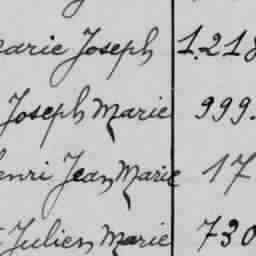 Marie Joseph 1.218
Joseph Marie 999.
Henri Jean Marie 17
Julien Marie 730